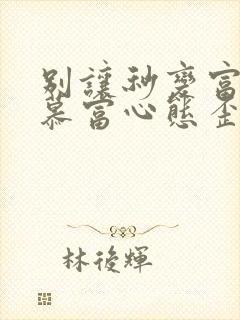 別讓秒變富
慕富心態歪
林後輝